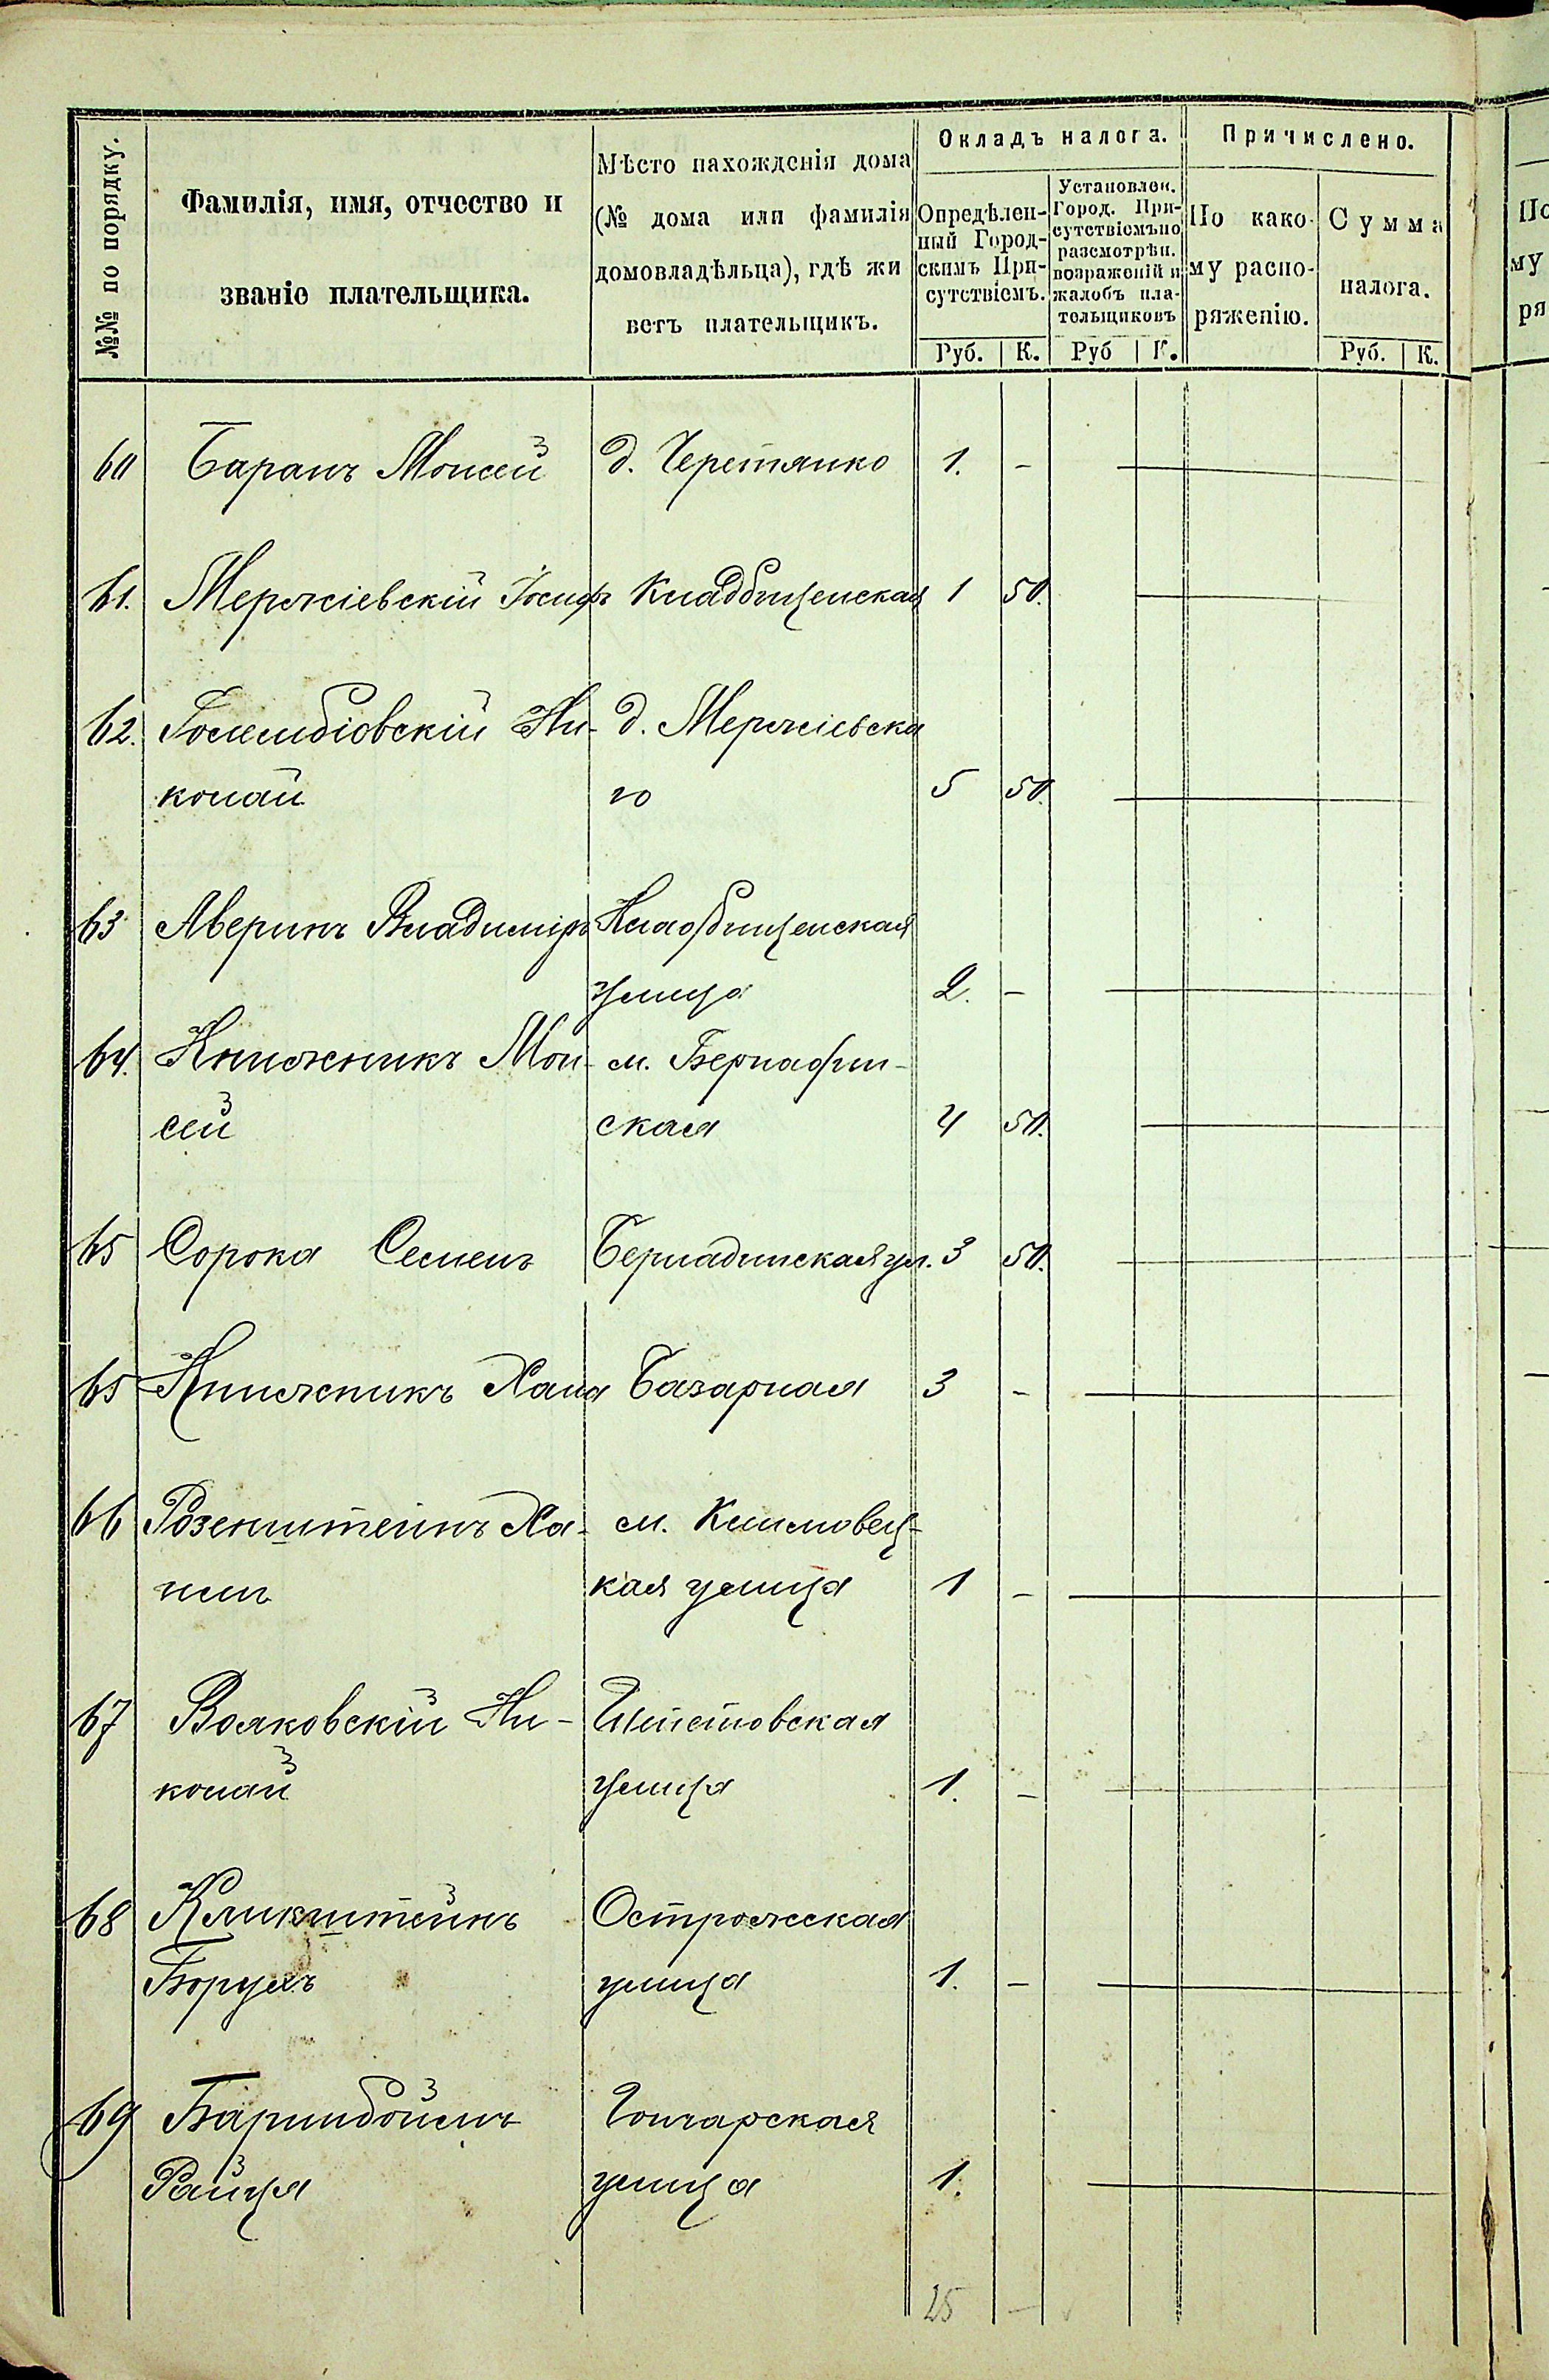 №№ по порядку.
Фамилія, имя, отчество и
званіе плательщика.
Мѣсто нахожденія дома
(№ дома или фамилія
домовладѣльца), гдѣ жи
ветъ плательщикъ.
Окладъ налога.
Опредѣлен-
ный Город-
скимъ При-
сутствіемъ.
Установлен.
Город. При-
сутствіемъ по
разсмотрѣн.
возраженій и
жалобъ пла-
тельщиковъ
Причислено.
По како-
му распо-
ряженію.
Сумма
налога.
Руб. К. Руб К. Руб. К.
60 Баранъ Моисей д. Черетянко 1. -
61. Мержіевскій Іосифъ Кладбищенская 1 50.
62. Голембіовскій Ни- д. Мержіевска
колай го 5 50.
63 Аверинъ Владиміръ Кладбищенская
улица 2. -
64. Книжникъ Мои- м. Бернадин-
сей ская 4 50.
65 Сорока Семенъ Бернадинская ул. 3 50.
65 Книжникъ Хаим Базарная 3 -
66 Розенштейнъ Ха- м. Климовец-
имъ кая улица 1 -
67 Волковскій Ни-
колай улица 1. -
68 Кликштейнъ Острожская
Борухъ улица 1. -
69 Баринбоймъ Гончарская
Райця улица 1.
25 -
По
му
ря